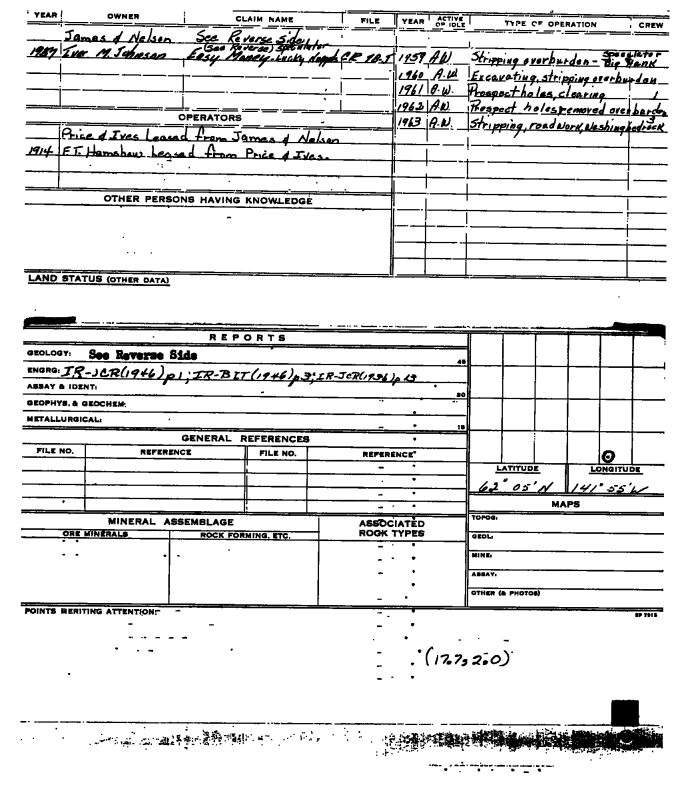 YEAR OWNER CLAIM NAME FILE YEAR ACTIVE OR IDLE TYPE OF OPERATION CREW
James & Nelson See Reverse Side
(See Reverse) Speculator
Ivar M. Johnson Easy Money-Lucky 1959 A.W. Stripping overburden - Speculator Big Hank
1960 A.W. Excavating, stripping overburden
1961 A.W. Prospect holes, clearing 1
OPERATORS
1962 A.W. Prospect holes, removed overburden
1963 A.W. Stripping, road work, washing bedrock 3
Price & Ives Leased from James & Nelson
1914 F.T. Hamshaw Leased from Price & Ives.
OTHER PERSONS HAVING KNOWLEDGE
LAND STATUS (OTHER DATA)
REPORTS
GEOLOGY: See Reverse Side
ENGRG: IR-JCR(1946)p1; IR-BIT(1946)p3; IR-JCR(1936)p13
ASSAY & IDENT: 20
GEOPHYS. & GEOCHEM:
METALLURGICAL: 15
GENERAL REFERENCES
FILE NO. REFERENCE FILE NO. REFERENCE
LATITUDE LONGITUDE
62° 05' N 141° 55' W
MAPS
MINERAL ASSEMBLAGE ASSOCIATED ROCK TYPES
ORE MINERALS ROCK FORMING, ETC.
TOPOG:
GEOL:
MINE:
ASSAY:
OTHER (& PHOTOS)
POINTS MERITING ATTENTION:
(17.7, 2.0)